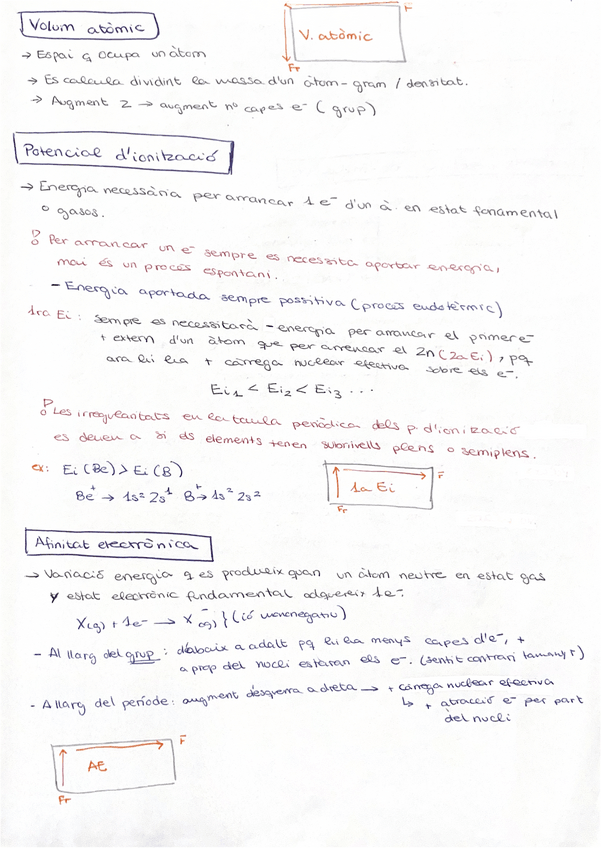 Volum atòmic
F
V. atòmic
Fr
→ Espai q ocupa un àtom
→ Es calcula dividint la massa d'un àtom-gram / densitat.
→ Augment Z → augment nº capes e⁻ (grup)
Potencial d'ionització
→ Energia necessària per arrancar 1 e⁻ d'un à. en estat fonamental
o gasos.
Per arrancar un e⁻ sempre es necessita aportar energia,
mai és un procés espontani.
- Energia aportada sempre possitiva (procés endotèrmic)
1ra Ei: sempre es necessitarà - energia per arrancar el primer e⁻
+ extern d'un àtom que per arrencar el 2n (2a Ei), pq
ara hi ha + càrrega nuclear efectiva sobre els e⁻.
Ei₁ < Ei₂ < Ei₃ ...
Les irregularitats en la taula periòdica dels p. d'ionizació
es deuen a si els elements tenen subnivells plens o semiplens.
ex: Ei (Be) > Ei (B)
Be⁺ → 1s² 2s¹ B⁺ → 1s² 2s²
F
1a Ei
Fr
Afinitat electrònica
→ Variació energia q es produeix quan un àtom neutre en estat gas
y estat electrònic fundamental adquereix 1e⁻.
X(g) + 1e⁻ → X⁻(g) } (ió mononegatiu)
- Al llarg del grup: d'abaix a adalt pq hi ha menys capes d'e⁻, +
a prop del nucli estaran els e⁻. (sentit contrari tamany r)
- Allarg del període: augment d'esquerra a dreta → + càrrega nuclear efectiva
↳ + atracció e⁻ per part
del nucli
F
AE
Fr